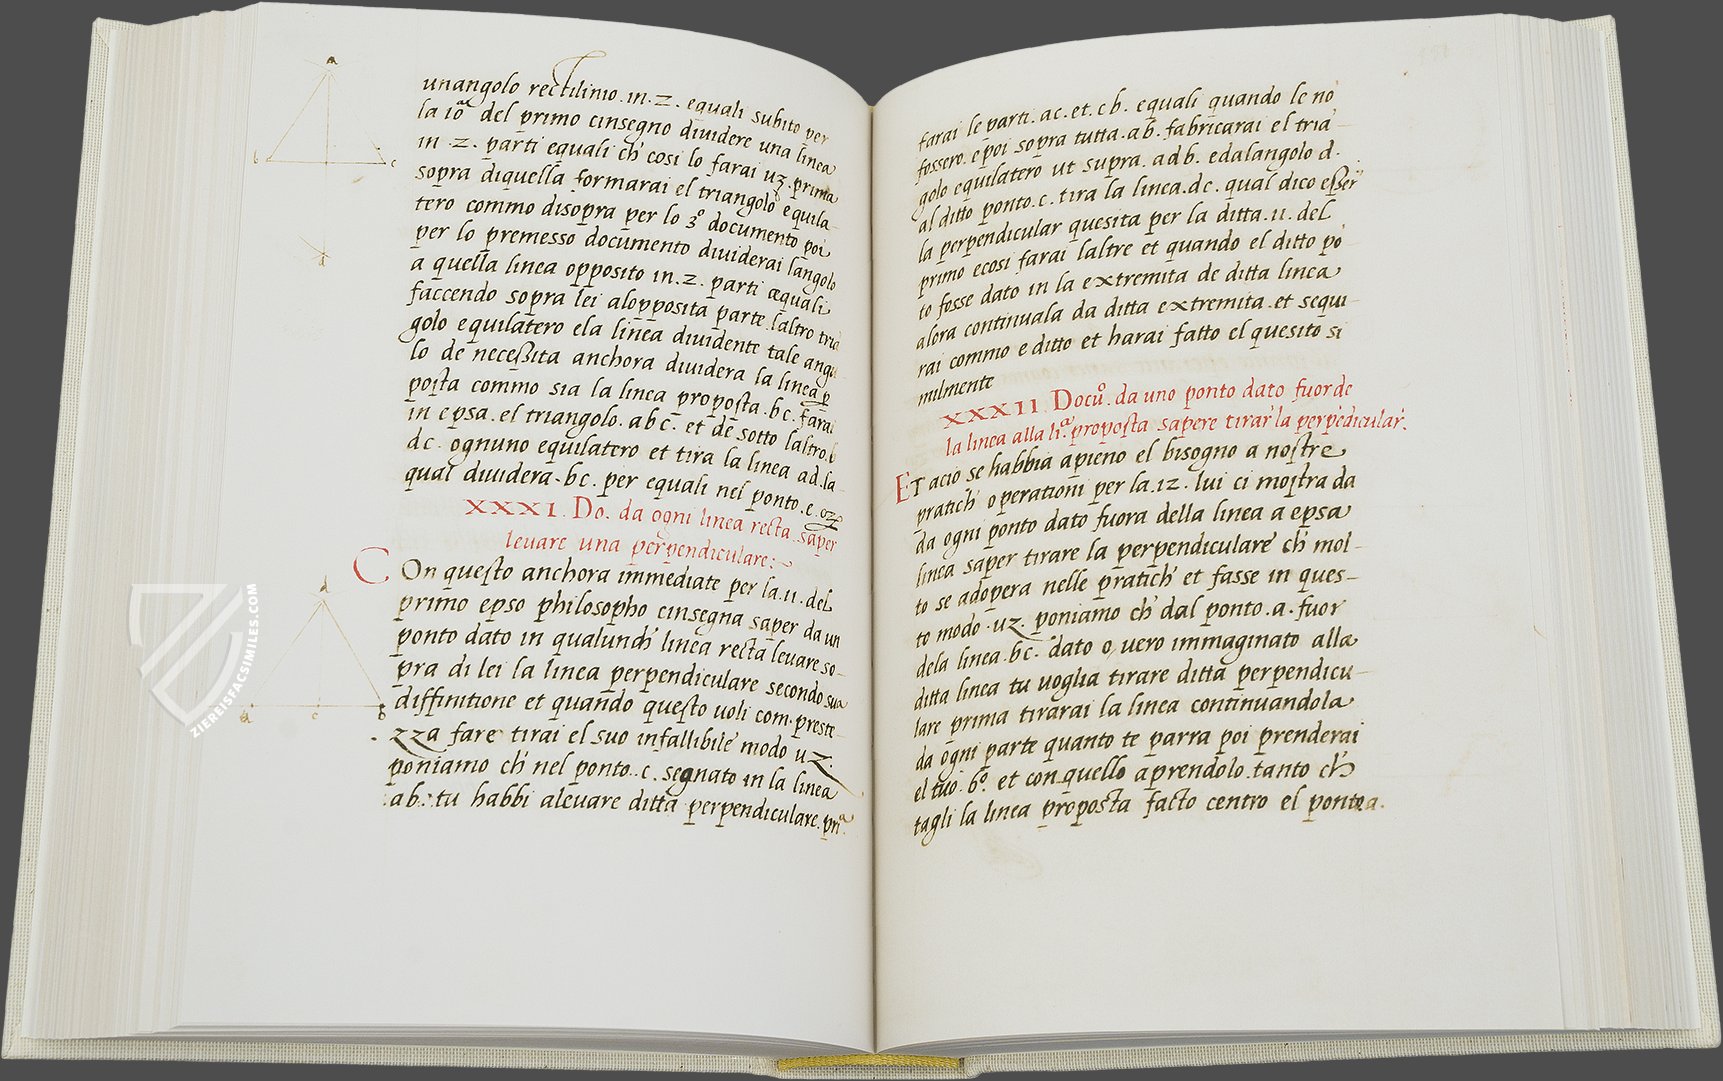 unangolo rectilinio .in.z. equali subito per
la 10ª del primo cinsegno diuidere una linea
in .z. parti equali ch' cosi lo farai uz. prima
sopra diquella formarai el triangolo equila
tero commo disopra per lo 3º documento poi
per lo premesso documento diuiderai langolo
a quella linea opposito in .z. parti æquali
faccendo sopra lei alopposita parte laltro tria
golo equilatero ela linea diuidente tale angu
lo de neceßita anchora diuidera la linea p
posta commo sia la linea proposta .bc. farai
in epsa .el triangolo. abc. et de sotto laltro b
dc. ognuno equilatero et tira la linea ad. la
qual diuidera .bc. per equali nel ponto .e.
XXXI. Do. da ogni linea recta saper
leuare una perpendiculare:~
COn questo anchora immediate per la .11. del
primo epso philosopho cinsegna saper da un
ponto dato in qualunch' linea recta leuare so-
pra di lei la linea perpendiculare secondo sua
diffinitione et quando questo uoli com preste-
zza fare tirai el suo infallibile modo uz.
poniamo ch' nel ponto .c. segnato in la linea
ab. tu habbi aleuare ditta perpendiculare. pnª
farai le parti .ac. et .cb. equali quando le nō
fossero. e poi sopra tutta .ab. fabricarai el tria-
golo equilatero ut supra .adb. edalangolo d.
al ditto ponto .c. tira la linea .dc. qual dico eßer
la perpendicular quesita per la ditta .11. del
primo ecosi farai laltre et quando el ditto pō
to fosse dato in la extremita de ditta linea
alora continuala da ditta extremita et sequi-
rai commo e ditto et harai fatto el quesito si
milmente
XXXII Docuº. da uno ponto dato fuor de
la linea alla liª proposta sapere tirar la perpēdicular.
ET acio se habbia apieno el bisogno a nostre
pratich' operationi per la .12. lui ci mostra da
da ogni ponto dato fuora della linea a epsa
linea saper tirare la perpendiculare ch' mol-
to se adopera nelle pratich' et fasse in ques-
to modo .uz. poniamo ch' dal ponto .a. fuor
dela linea .bc. dato o uero immaginato alla
ditta linea tu uoglia tirare ditta perpendicu-
lare prima tirarai la linea continuandola
da ogni parte quanto te parra poi prenderai
el tuo .6º. et con quello aprendolo tanto ch'
tagli la linea proposta facto centro el ponto a.
a
b
c
d
d
a
c
b
ZIEREISFACSIMILES.COM